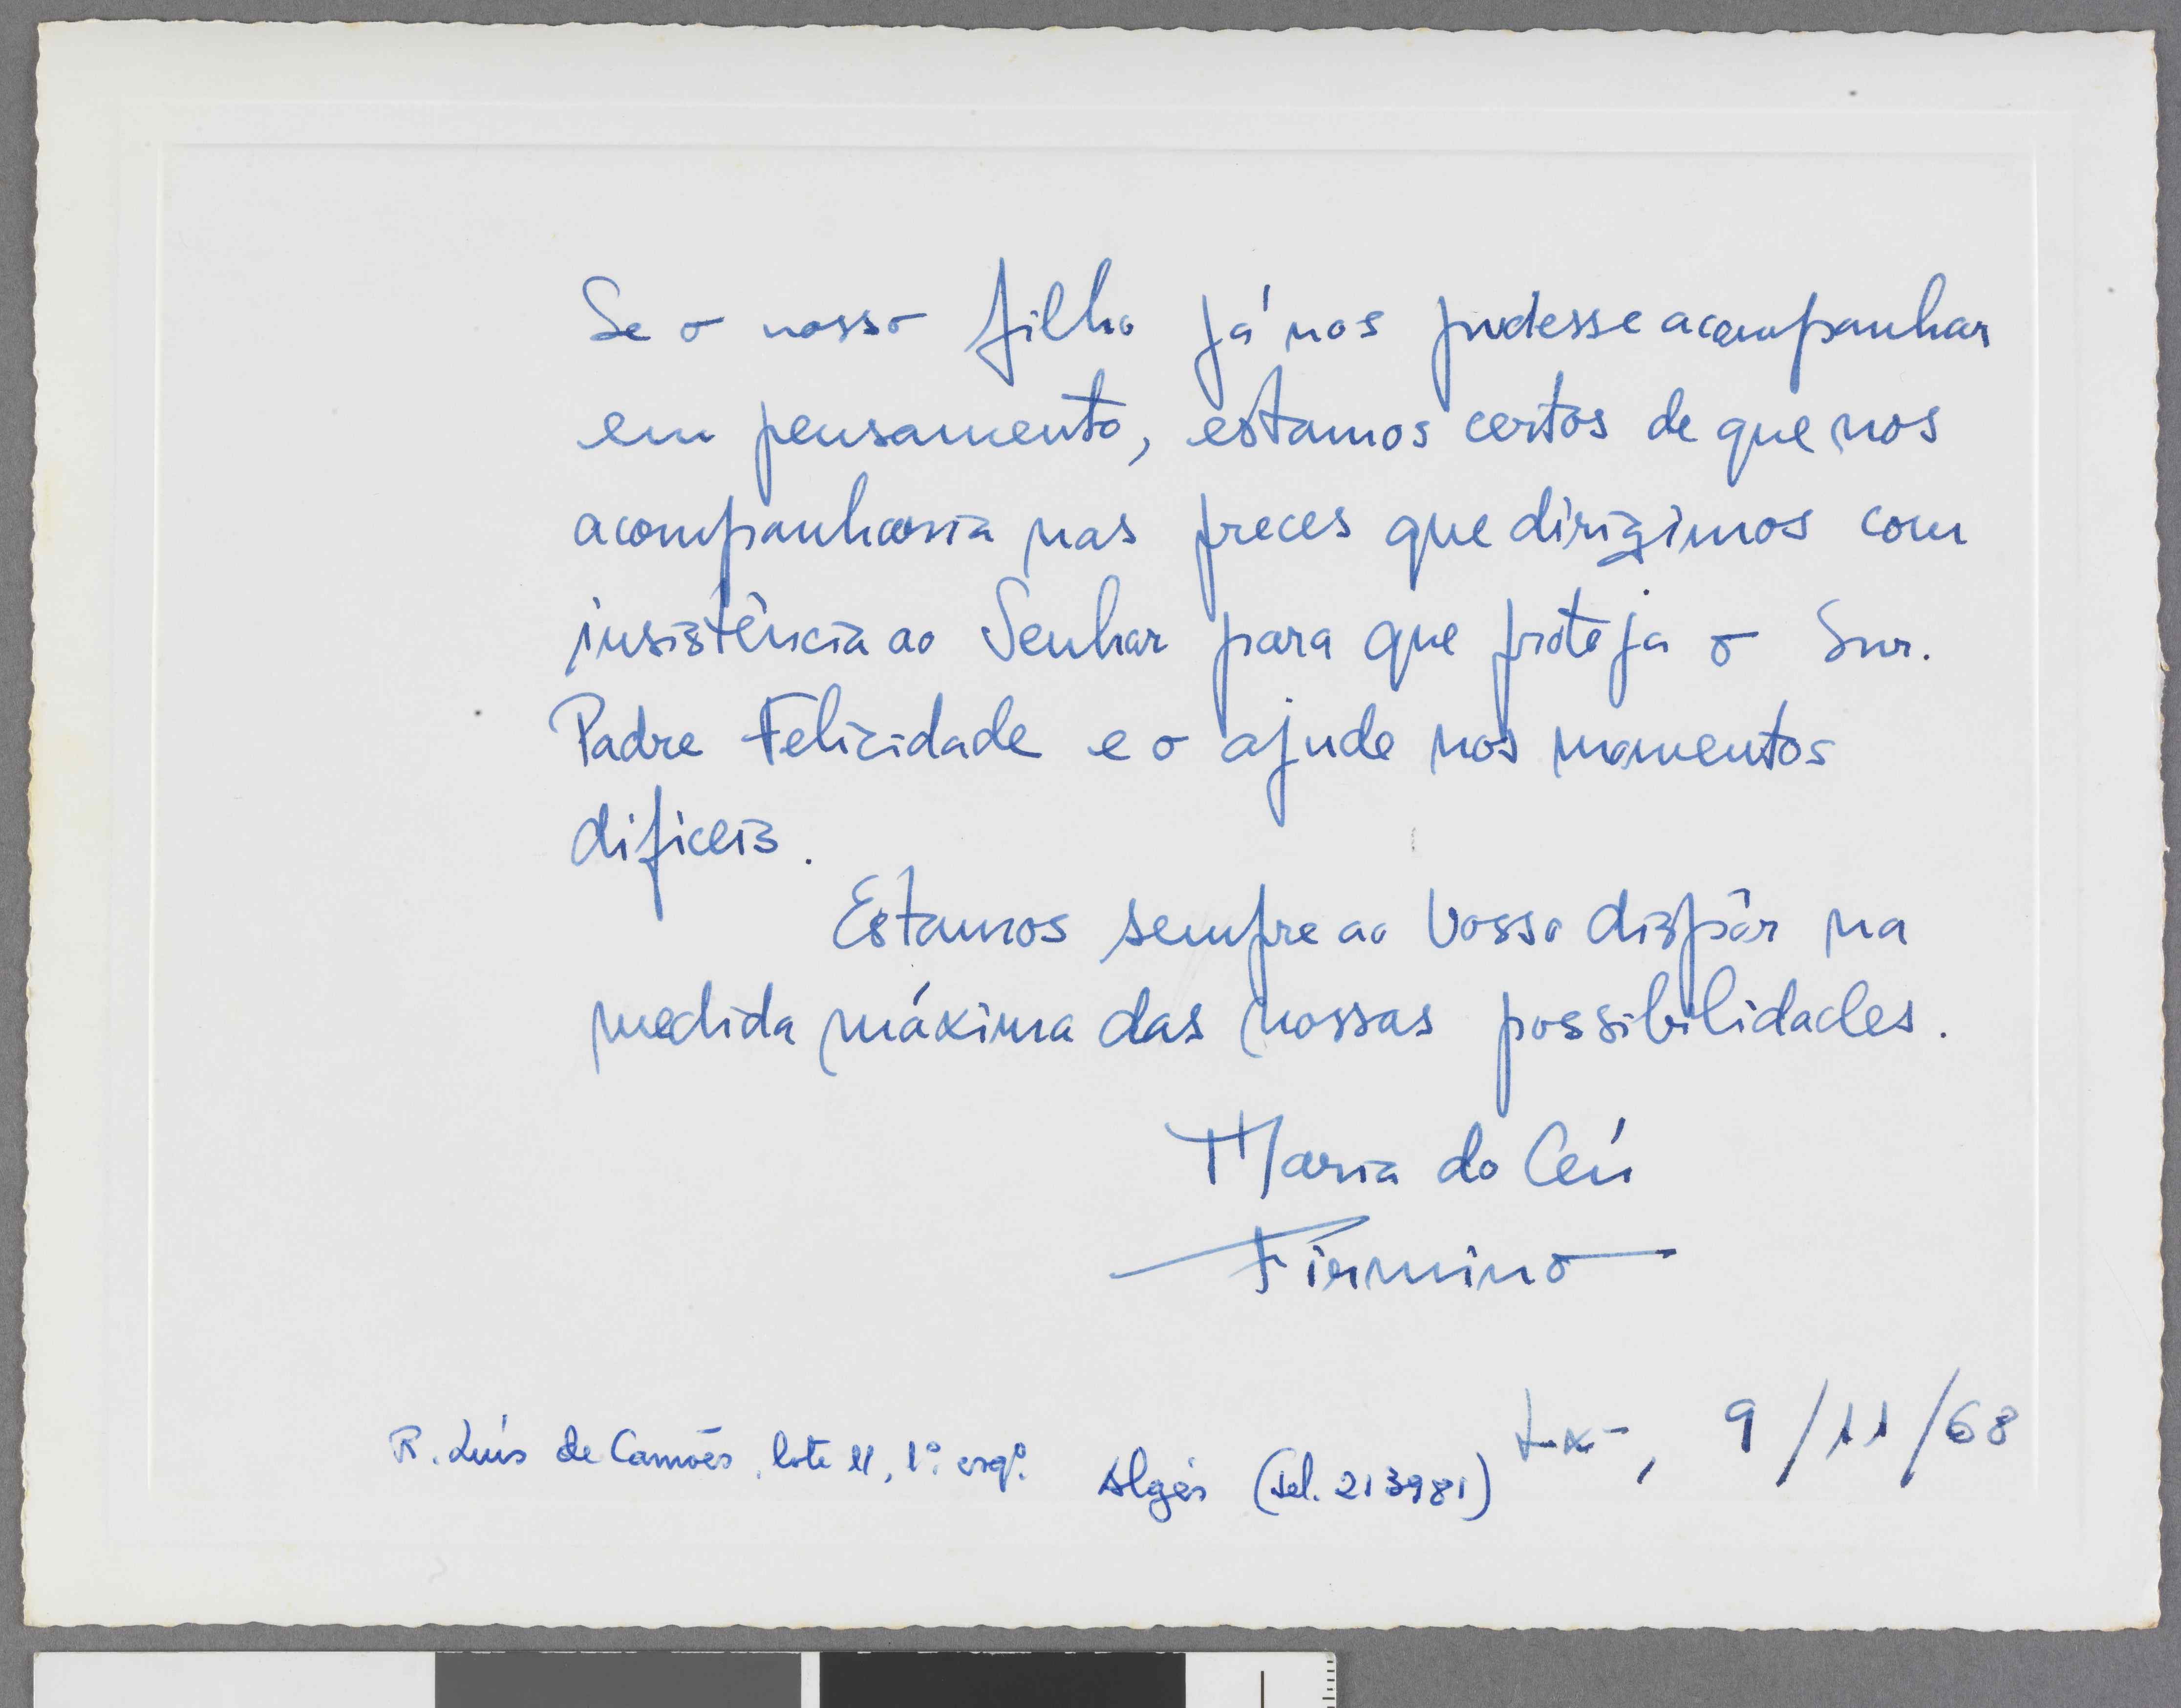 Se o nosso filho já nos pudesse acompanhar
em pensamento, estamos certos de que nos
acompanharia nas preces que dirigimos com
insistência ao Senhor para que proteja o Snr.
Padre Felicidade e o ajude nos momentos
dificeis.
Estamos sempre ao Vosso dispôr na
medida máxima das nossas possibilidades.
Maria do Céu
Firmino
Lx-, 9/11/68
R. Luís de Camões, lote 11, 1º. esqº.
Algés (Tel. 213981)